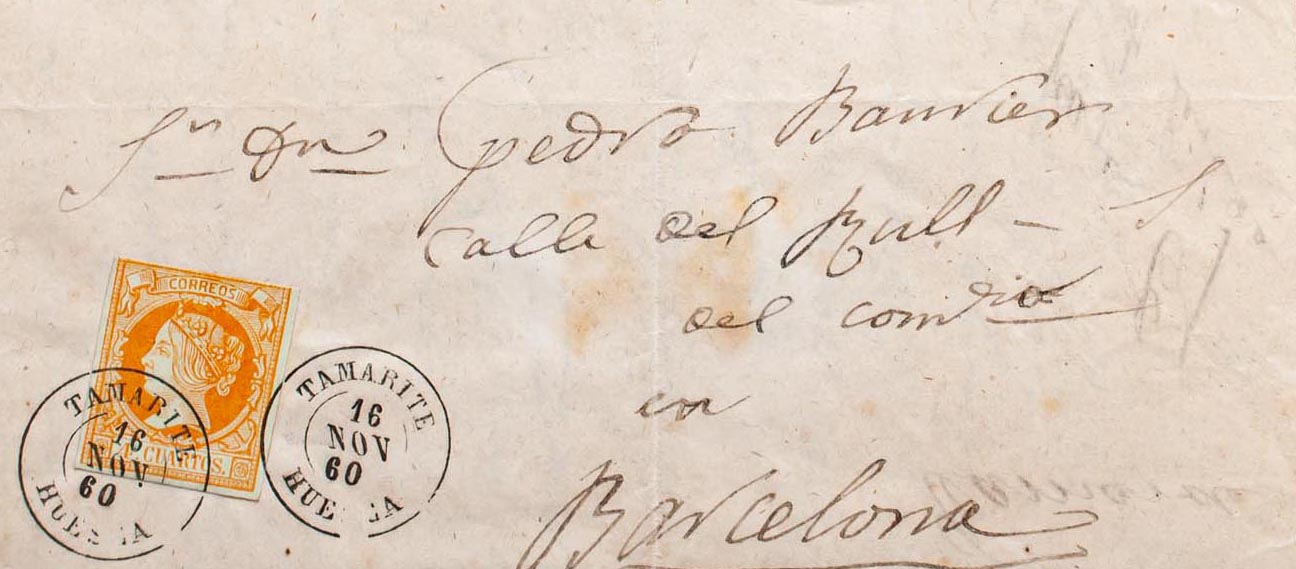 Sn Dn pedro Banvier
Calle del Bull - S
del
en
Barcelona
CORREOS
4 CUARTOS.
TAMARITE
16
NOV
60
HUESCA
TAMARITE
16
NOV
60
HUESCA